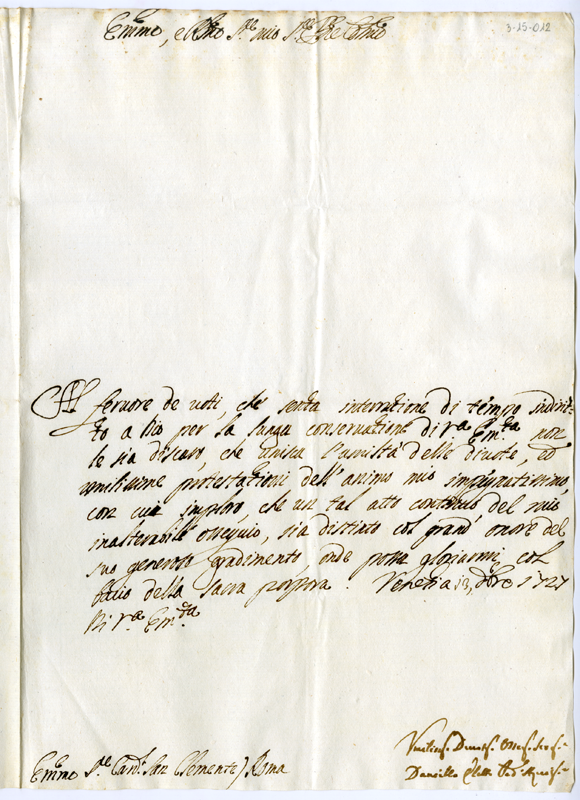 3-15-012
Emmo, e Rmo Sre mio Sre Pne Colmo
Al fervore de voti, che senza interrutione di tempo indiriz-
to a Dio per la lunga conservatione di Va. Emza. non
le sia discaro, che unisca l'umiltà delle divote, ed
umilissime protestationi dell'animo mio
con cui imploro, che un tal atto continuo del mio
inalterabile ossequio, sia distinto col grand' onore del
suo generoso gradimento, onde possa gloriarmi, col
bacio della Sacra porpora. Venetia 13, Xbre 1727
Di Va. Emza.
Umilis. Devot. Obbl. Serv.
Emmo Sre Card. San Clemente) Roma
Daniello